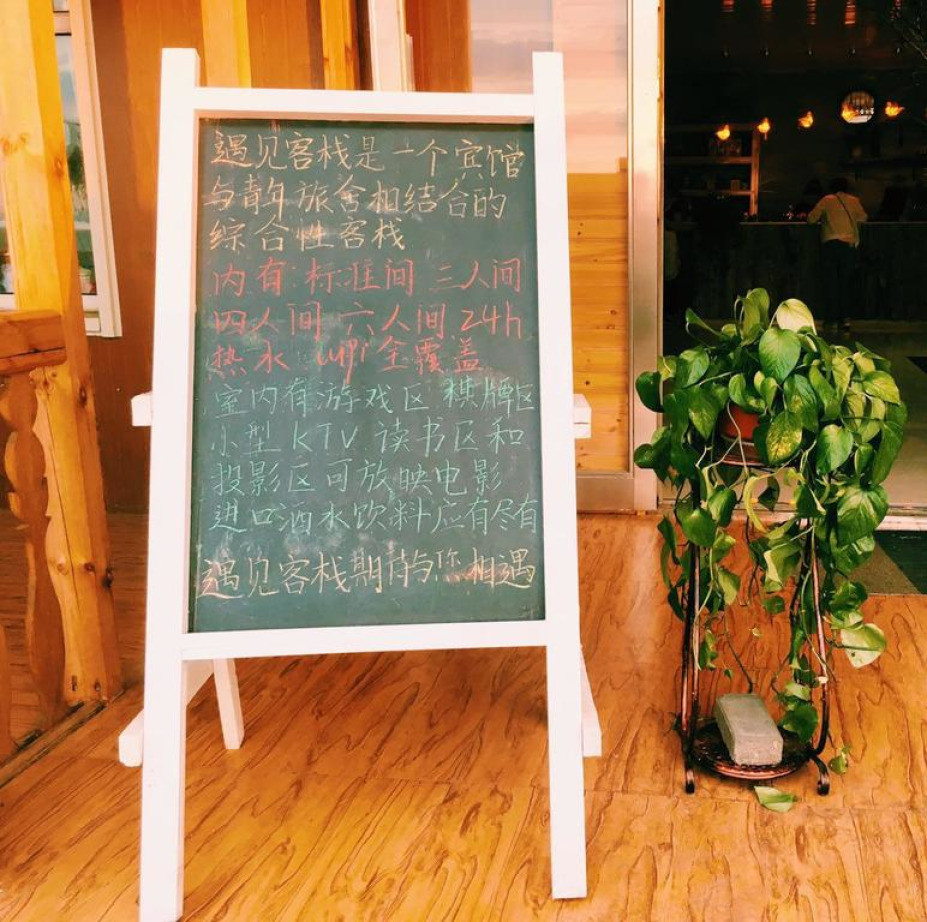 遇见客栈是一个宾馆
与青年旅舍相结合的
综合性客栈
内有:标准间 三人间
四人间 六人间 24h
热水 wifi 全覆盖
室内有游戏区 棋牌区
小型 KTV 读书区和
投影区可放映电影
进口酒水饮料应有尽有
遇见客栈期待与您相遇